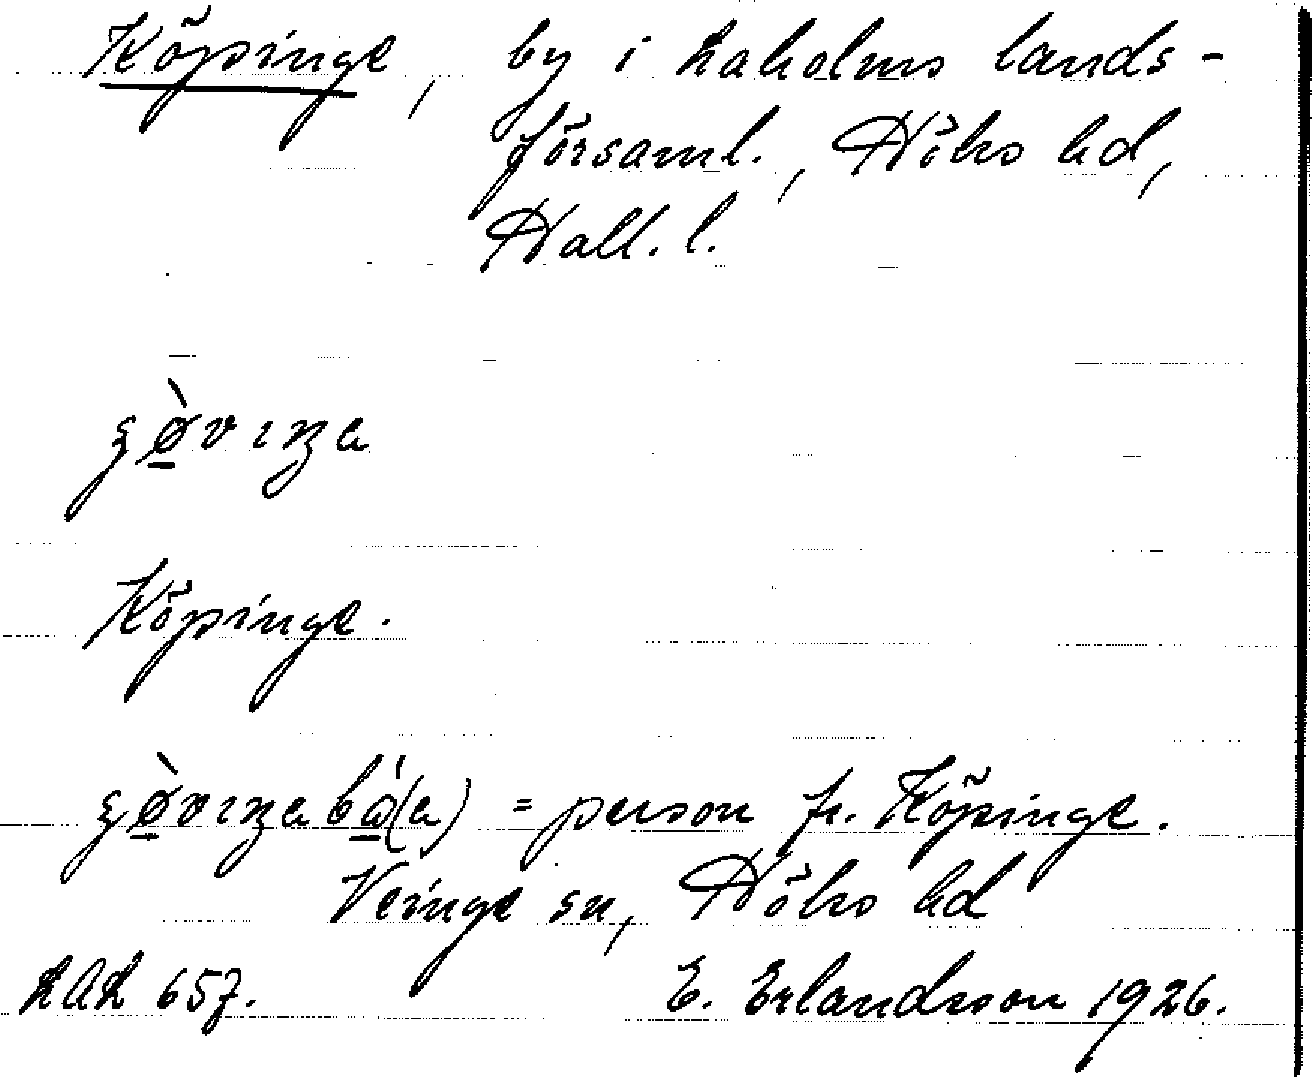 Köpinge, by i Laholms lands-
församl., Höks hd,
Hall. l.
Köpinge.
= person fr. Köpinge.
Veinge sn, Höks hd
LAL 657. E. Erlandsson 1926.